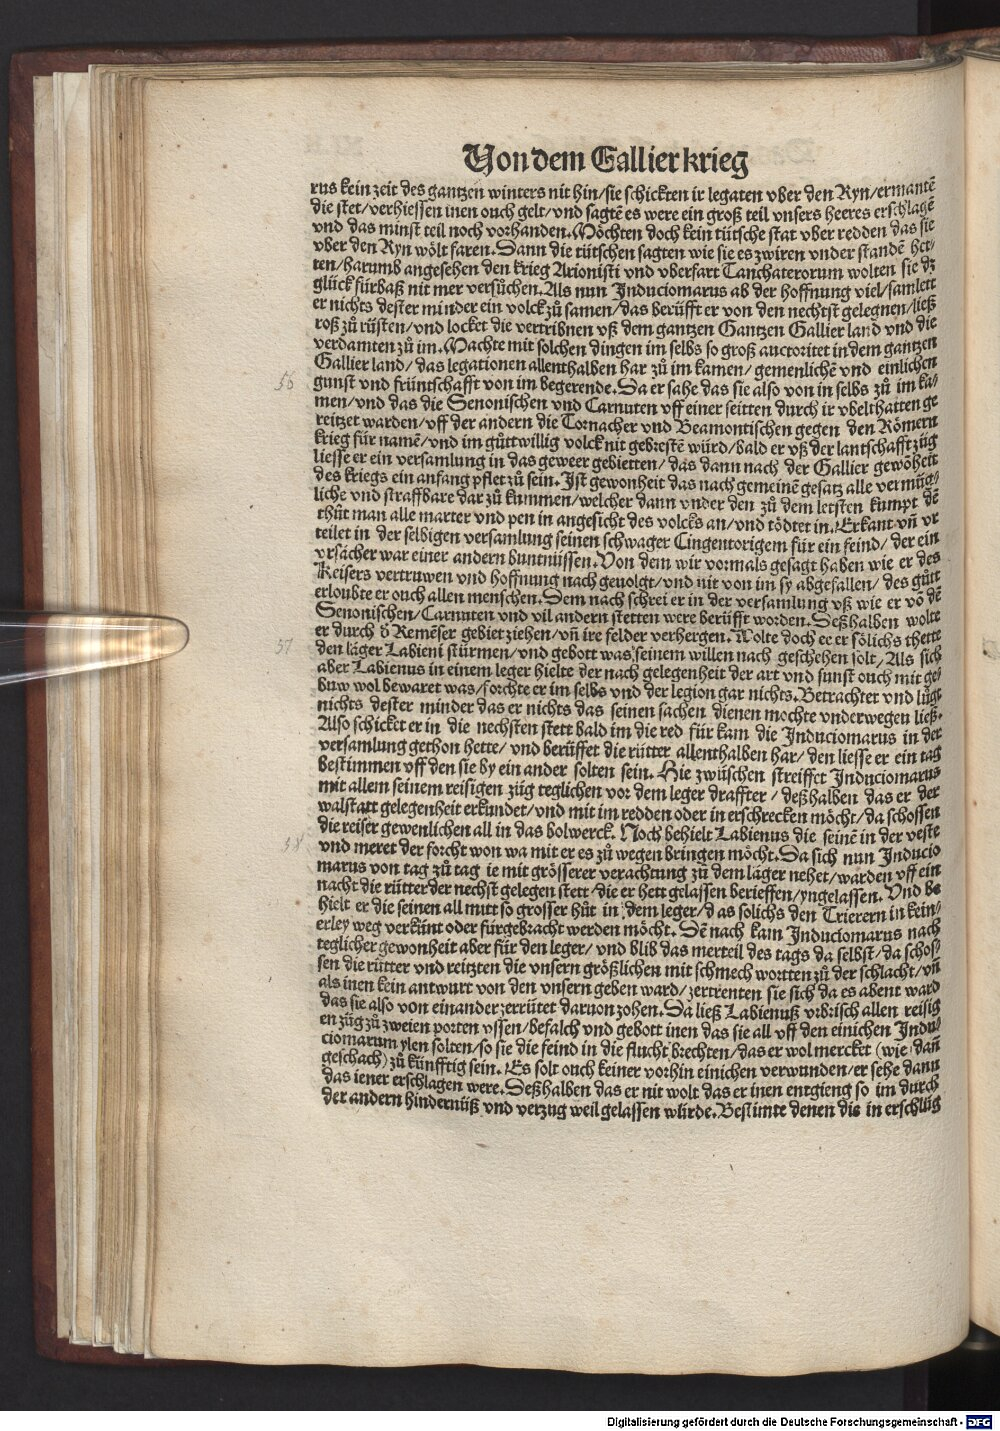 Von dem Gallier krieg
rus kein zeit des gantzen winters nit hin/sie schickten ir legaten vber den Ryn/ermantē
die stet/verhiessen inen ouch gelt/vnd sagtē es were ein groß teil vnsers heeres erschlagē
vnd das minst teil noch vorhanden. Möchten doch kein tütsche stat vber redden das sie
vber den Ryn wölt faren. Dann die tütschen sagten wie sie es zwiren vnder standē het-
ten/harumb angesehen den krieg Arionisti vnd vberfart Tanchaterorum wolten sie dz
glück fürbaß nit mer versůchen. Als nun Induciomarus ab der hoffnung viel/samlett
er nichts dester minder ein volck zů samen/das berüfft er von den nechtst gelegnen/ließ
roß zů rüsten/vnd locket die vertribnen vß dem gantzen Gantzen Gallier land vnd die
verdamten zů im. Machte mit solchen dingen im selbs so groß auctoritet in dem gantzen
Gallier land/das legationen allenthalben har zů im kamen/gemenlichē vnd einlichen
56
gunst vnd früntschafft von im begerende. Da er sahe das sie also von in selbs zů im ka-
men/vnd das die Senonischen vnd Carnuten vff einer seitten durch ir vbelthatten ge
reitzet warden/vff der andern die Tornacher vnd Beamontischen gegen den Römern
krieg für namē/vnd im gůttwillig volck nit gebrestē würd/bald er vß der lantschafft züg
liesse er ein versamlung in das geweer gebietten/das dann nach der Gallier gewōheit
des kriegs ein anfang pflet zů sein. Ist gewonheit das nach gemeinē gesatz alle vermüg-
liche vnd straffbare dar zů kummen/welcher dann vnder den zů dem letsten kumpt dē
thůt man alle marter vnd pen in angesicht des volcks an/vnd tödtet in. Erkant vñ vr
teilet in der selbigen versamlung seinen schwager Cingentorigem für ein feind/der ein
vrsächer war einer andern buntnüssen. Von dem wir vormals gesagt haben wie er des
Keisers vertruwen vnd hoffnung nach geuolgt/vnd nit von im sy abgefallen/des gůtt
erloubte er ouch allen menschen. Dem nach schrei er in der versamlung vß wie er vō dē
Senonischen/Carnuten vnd vil andern stetten were berüfft worden. Deßhalben wolte
er durch d̕ Remēser gebiet ziehen/vñ ire felder verhergen. Wolte doch ee er sölichs thette
57
den läger Labieni stürmen/vnd gebott was seinem willen nach geschehen solt/Als sich
aber Labienus in einem leger hielte der nach gelegenheit der art vnd sunst ouch mit ge-
buw wol bewaret was/forchte er im selbs vnd der legion gar nichts. Betrachtet vnd lůgt
nichts dester minder das er nichts das seinen sachen dienen mochte vnderwegen ließ.
Also schicket er in die nechsten stett bald im die red für kam die Induciomarus in der
versamlung gethon hette/vnd berüffet die rütter allenthalben har/den liesse er ein tag
bestimmen vff den sie by ein ander solten sein. Hie zwüschen streiffet Induciomarus
mit allem seinem reisigen züg teglichen vor dem leger draffter/deßhalben das er der
walstatt gelegenheit erkundet/vnd mit im redden oder in erschrecken möcht/da schossen
die reiser gewenlichen all in das bolwerck. Noch behielt Labienus die seinē in der veste
58
vnd meret der forcht won wa mit er es zů wegen bringen möcht. Da sich nun Inducio
marus von tag zů tag ie mit grösserer verachtung zů dem läger nehet/warden vff ein
nacht die rütter der nechst gelegen stett/die er hett gelassen berieffen/yngelassen. Vnd be
hielt er die seinen all mitt so grosser hůt in dem leger/das solichs den Trierern in kein-
erley weg verkünt oder fürgebracht werden möcht. Dē nach kam Induciomarus nach
teglicher gewonheit aber für den leger/vnd blib das merteil des tags da selbst/da schos-
sen die rütter vnd reitzten die vnsern größlichen mit schmech wortten zů der schlacht/vñ
als inen kein antwurt von den vnsern geben ward/zertrenten sie sich da es abent ward
das sie also von einander zerrütet daruon zohen. Da ließ Labienuß vrbrisch allen reisig
en züg zů zweien porten vssen/befalch vnd gebott inen das sie all vff den einichen Indu-
ciomarum ylen solten/so sie die feind in die flucht brechten/das er wol mercket (wie dañ
geschach) zů künfftig sein. Es solt ouch keiner vorhin einichen verwunden/er sehe dann
das iener erschlagen were. Deßhalben das er nit wolt das er inen entgieng so im durch
der andern hindernüß vnd verzug weil gelassen würde. Bestimte denen die in erschlůg
Digitalisierung gefördert durch die Deutsche Forschungsgemeinschaft - DFG